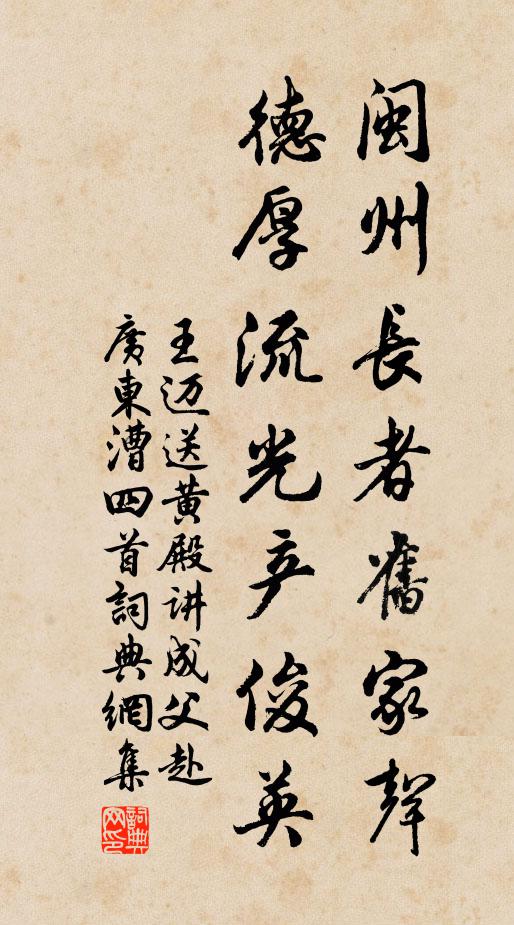 闽州長者舊家聲
德厚流光产俊英
王迈送黄殿讲成父赴
廣東漕四首詞典網集
詞典
网印